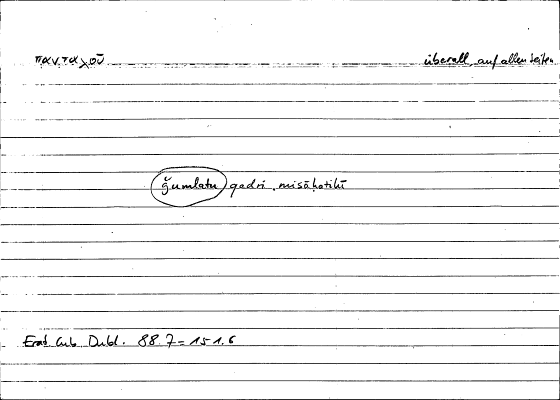 πανταχοῦ überall, auf allen Seiten
ǧumlatu qadri misāḥatihī
Erat. Cub. Dupl. 88.7 = 151.6